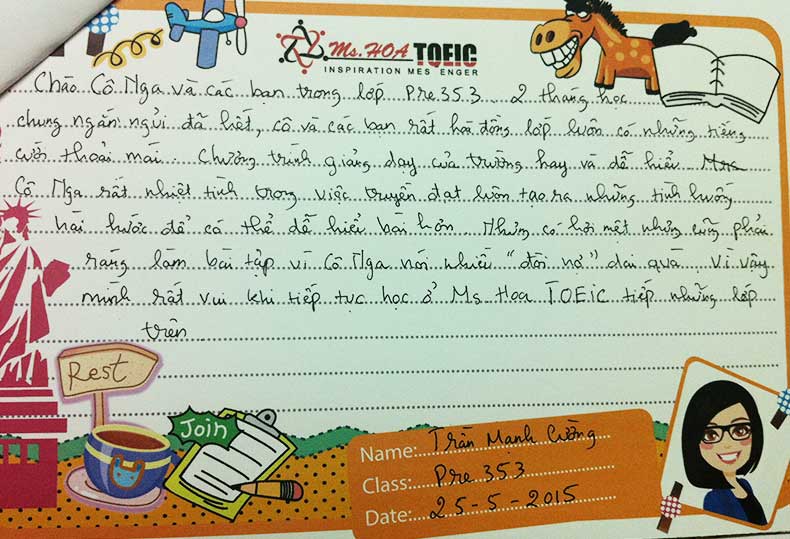 Ms.HOA TOEIC
INSPIRATION MES ENGER
Chào Cô Nga và các bạn trong lớp Pre 353. 2 tháng học
chung ngắn ngủi đã hết, cô và các bạn rất hòa đồng lớp luôn có những tiếng
cười thoải mái. Chương trình giảng dạy của trường hay và dễ hiểu.
Cô Nga rất nhiệt tình trong việc truyền đạt luôn tạo ra những tình huống
hài hước để có thể dễ hiểu bài hơn. Nhưng có hơi mệt nhưng cũng phải
ráng làm bài tập vì Cô Nga nói nhiều "đòi nợ" dai quá. Vì vậy
mình rất vui khi tiếp tục học ở Ms Hoa TOEiC tiếp những lớp
trên.
Rest
Join
Name: Trần Mạnh Cường
Class: Pre 353
Date: 25-5-2015